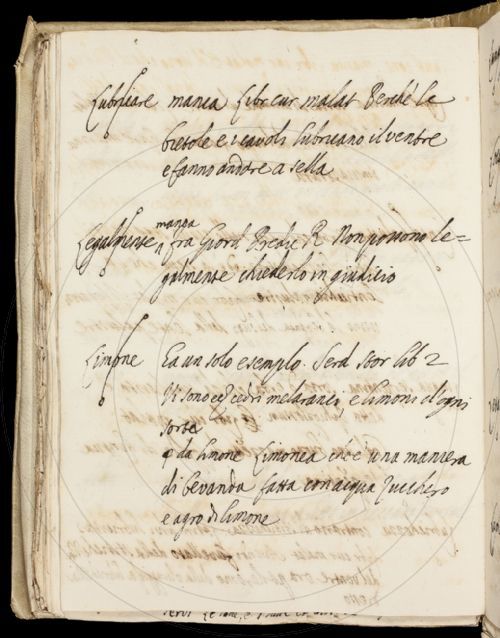 Lubricare manca Libr cur malat Perche le
bietole e i cavoli lubricano il ventre
e fanno andare a sella
Legalmente manca fra Giord Predic R Non possono le=
galmente chiederlo in giudicio
Limone Ea un solo esempio. Serd Stor lib 2
Vi sono cedri melaranci, e limoni d'ogni
sorte
da limone Limonea che è una maniera
di bevanda fatta con acqua Zucchero
e agro di limone